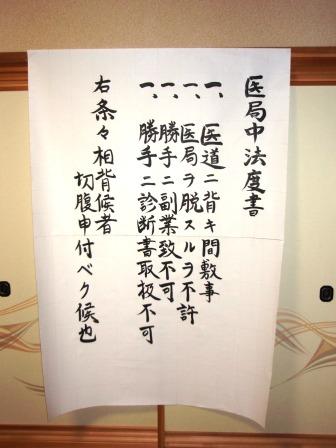 医局中法度書
一、医道ニ背キ間敷事
一、医局ヲ脱スルヲ不許
一、勝手ニ副業致不可
一、勝手ニ診断書取扱不可
右条々相背候者
切腹申付ベク候也